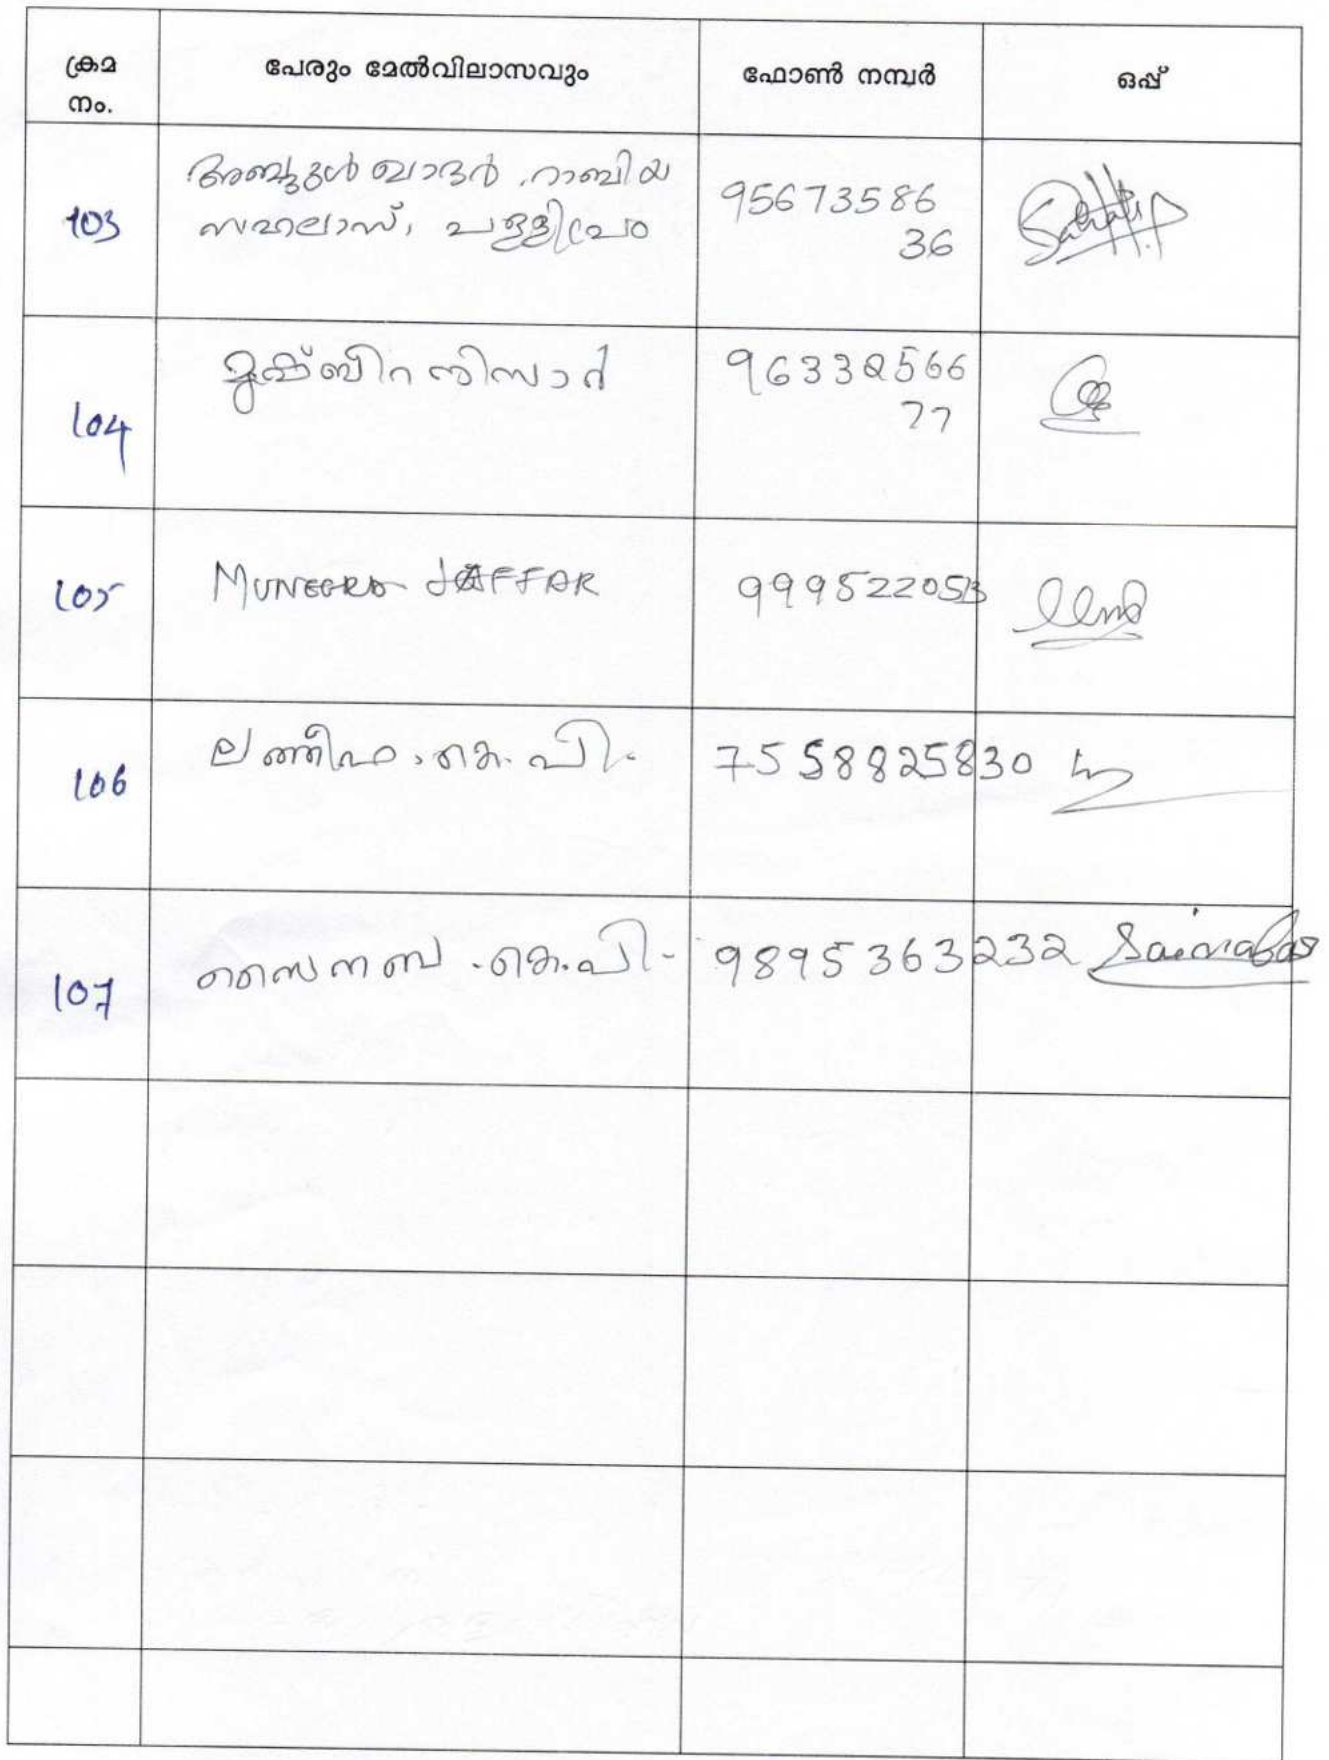 ക്രമ നം.	പേരും മേൽവിലാസവും	ഫോൺ നമ്പർ	ഒപ്പ്
103	അബ്ദുൾ ഖാദർ, റാബിയ	95673586
സഹലാസ്, പള്ളിപ്രം	36
104	മുഷ്ബീറ നിസാർ	96332566
77
105	MUNEERA JAFFAR	999522053
106	ലത്തീഫ. കെ. പി.	7558825830
107	സൈനബ. കെ. പി.	9895363232	Sainabas